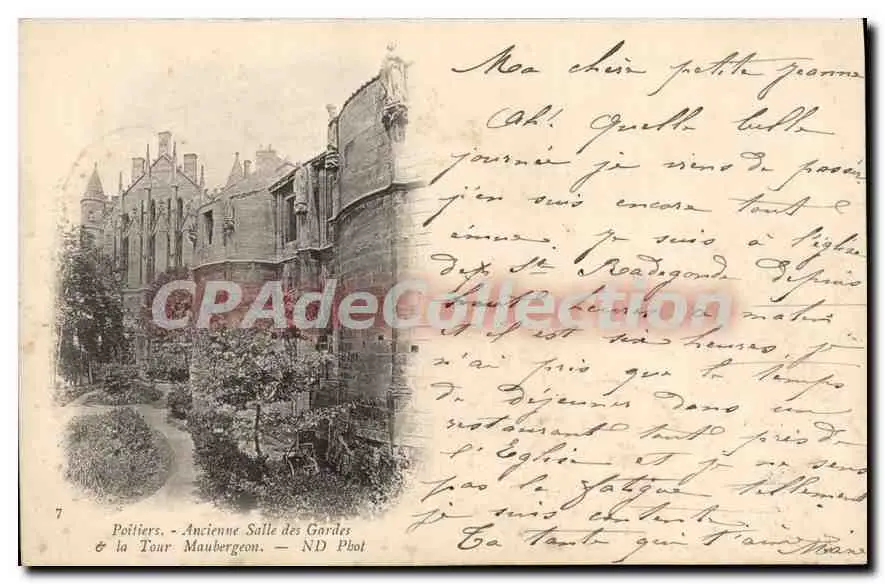 Ma chère petite Jeanne
Ah! Quelle belle
journée je viens de passer
j'en suis encore toute
émue. Je suis à l'église
de Ste Radegonde depuis
huit heures du matin
et il est six heures, je
n'ai pris que le temps
de déjeuner dans un
restaurant tout près de
l'Eglise et je ne sens
pas la fatigue tellement
je suis contente.
Ta tante qui t'aime
CPADeCollection.com
7
Poitiers. - Ancienne Salle des Gardes
& la Tour Maubergeon. — ND Phot